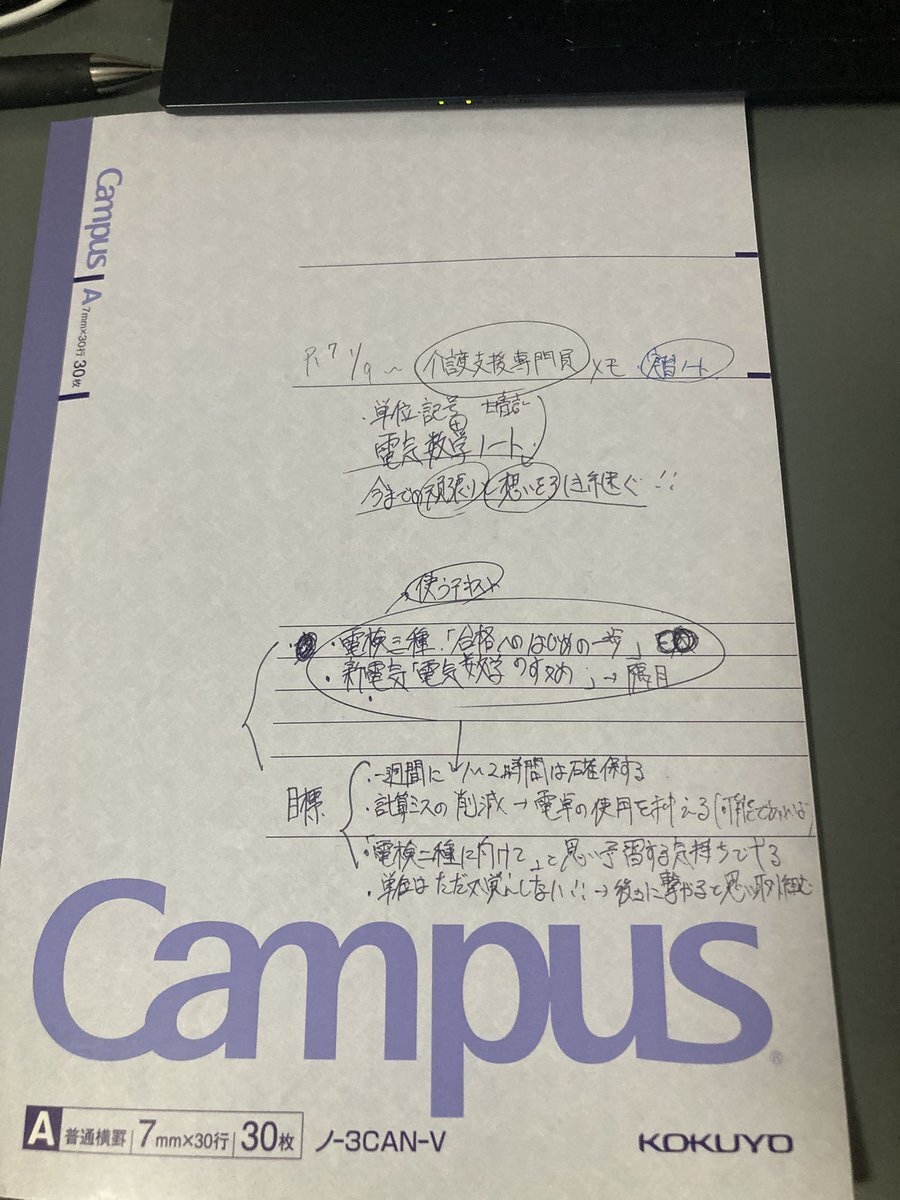 Campus
A 7mm×30行 30枚
R.7 1/9〜 介護支援専門員 メモ 実習ノート
・単位・記号 暗記
電気数学ノート
今までの頑張りと想いを引き継ぐ!!
使うテキスト
・電検三種「合格へのはじめの一歩」
・新電気「電気数学のすすめ」→隔月
目標
・一週間に1〜2時間は確保する
・計算ミスの削減→電卓の使用を抑える(可能であれば)
・「電検二種に向けて」と思い予習する気持ちでやる
・単位はただ覚えしない!!→後々に繋がると思い取り組む
Campus®
A 普通横罫 7mm×30行 30枚 ノ-3CAN-V KOKUYO